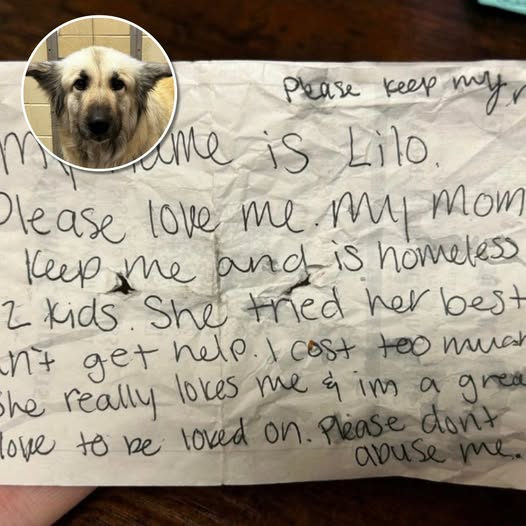 Please keep my
is Lilo.
Please love me. My Mom
keep me and is homeless
2 kids. She tried her best
get help. I cost too much
She really loves me & im a grea
love to be loved on. Please dont
abuse me.